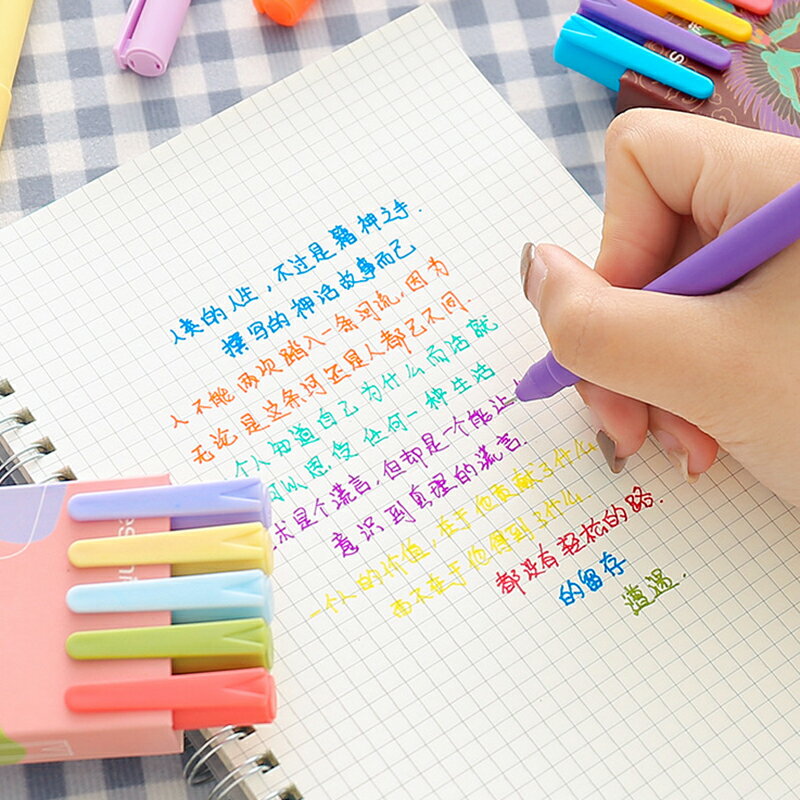 人类的人生，不过是藉神之手.
撰写的神话故事而已
人不能两次踏入一条河流.因为
无论是这条河还是人都已不同.
个人知道自己为什么而活就
可以忍受任何一种生活
术是个谎言,但却是一个能让
意识到真理的谎言.
一个人的价值，在于他贡献了什么
而不在于他得到了什么.
都没有轻松的路.
的留存
遭遇.